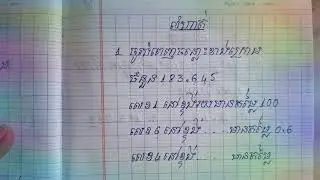 លំហាត់
1. ចូរបំពេញចន្លោះខាងក្រោម
ចំនួន 183.645
លេខ1 នៅខ្ទង់រយមានតម្លៃ 100
លេខ6 នៅខ្ទង់ ..... មានតម្លៃ 0.6
លេខ4 នៅខ្ទង់ ..... មានតម្លៃ